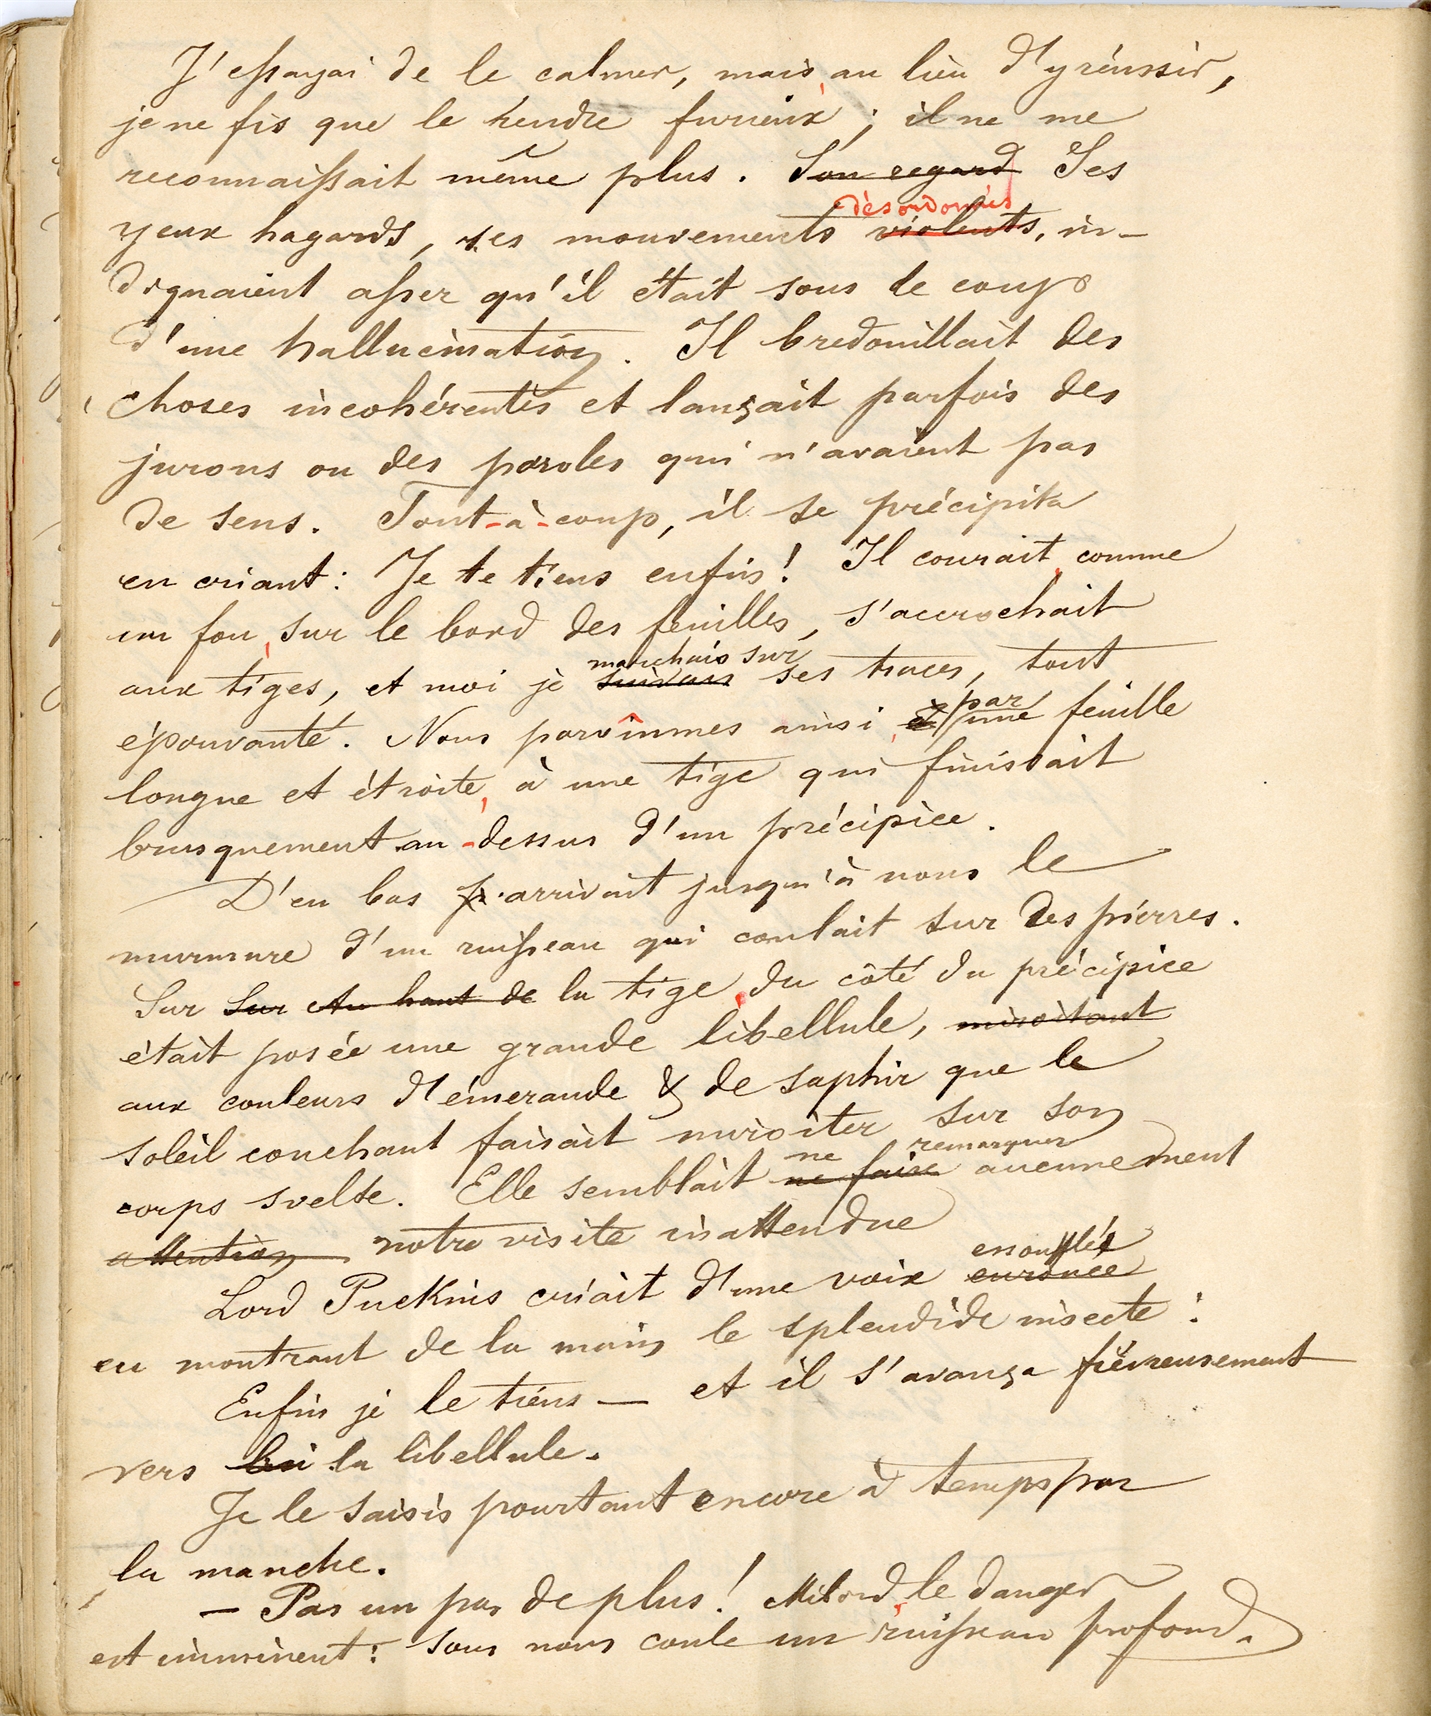 J'essayai de le calmer, mais au lieu d'y réussir,
je ne fis que le rendre furieux ; il ne me
reconnaissait même plus. Son regard Ses
désordonnés
yeux hagards, ses mouvements violents, in-
diquaient assez qu'il était sous le coup
d'une hallucination. Il bredouillait des
choses incohérentes et lançait parfois des
jurons ou des paroles qui n'avaient pas
de sens. Tout-à-coup, il se précipita
en criant : Je te tiens enfin ! Il courait, comme
un fou, sur le bord des feuilles, s'accrochait
marchais sur
aux tiges, et moi je suivais ses traces, tout
par
épouvanté. Nous parvînmes ainsi, à une feuille
longue et étroite, à une tige qui finissait
brusquement au-dessus d'un précipice.
D'en bas arrivait jusqu'à nous le
murmure d'un ruisseau qui coulait sur des pierres.
Sur Sur Au haut de la tige, du côté du précipice
était posée une grande libellule, miroitant
aux couleurs d'émeraude & de saphir que le
soleil couchant faisait miroiter sur son
ne remarquer
corps svelte. Elle semblait ne faire aucunement
attention notre visite inattendue
essoufflée
Lord Puckins criait d'une voix enrouée
en montrant de la main le splendide insecte :
Enfin je le tiens — et il s'avança fiévreusement
vers lui la libellule.
Je le saisis pourtant encore à temps par
la manche.
— Pas un pas de plus ! Milord, le danger
est imminent : sous nous coule un ruisseau profond.